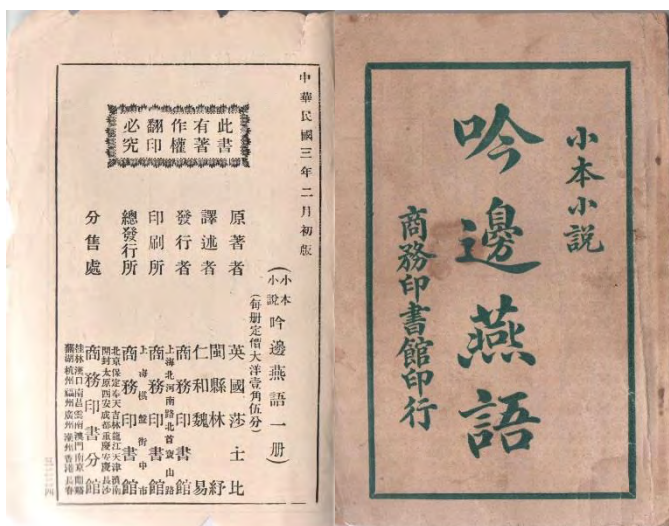 小本小說
吟邊燕語
商務印書館印行
中華民國三年二月初版
(小本小說吟邊燕語一册)
(每册定價大洋壹角伍分)
此書
有著
作權
翻印
必究
原著者 英國莎士比
譯述者 閩縣林紓
仁和魏易
發行者 商務印書館
上海北河南路北首寶山路
印刷所 商務印書館
上海棋盤街中市
總發行所 商務印書館
分售處 商務印書分館
北京保定奉天吉林龍江天津濟南
開封太原西安成都重慶安慶長沙
桂林漢口南昌